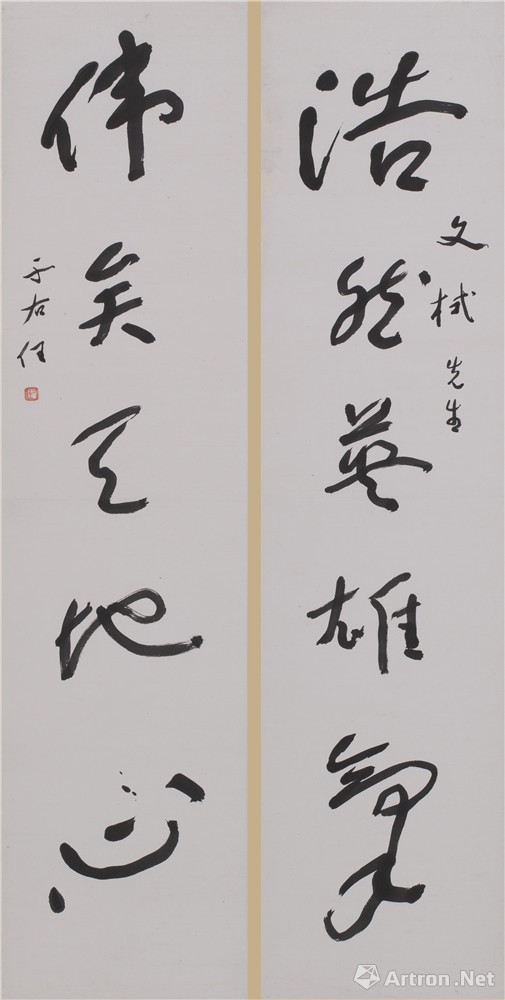 浩然英雄氣
文栻先生
偉矣天地心
于右任
Artron.Net